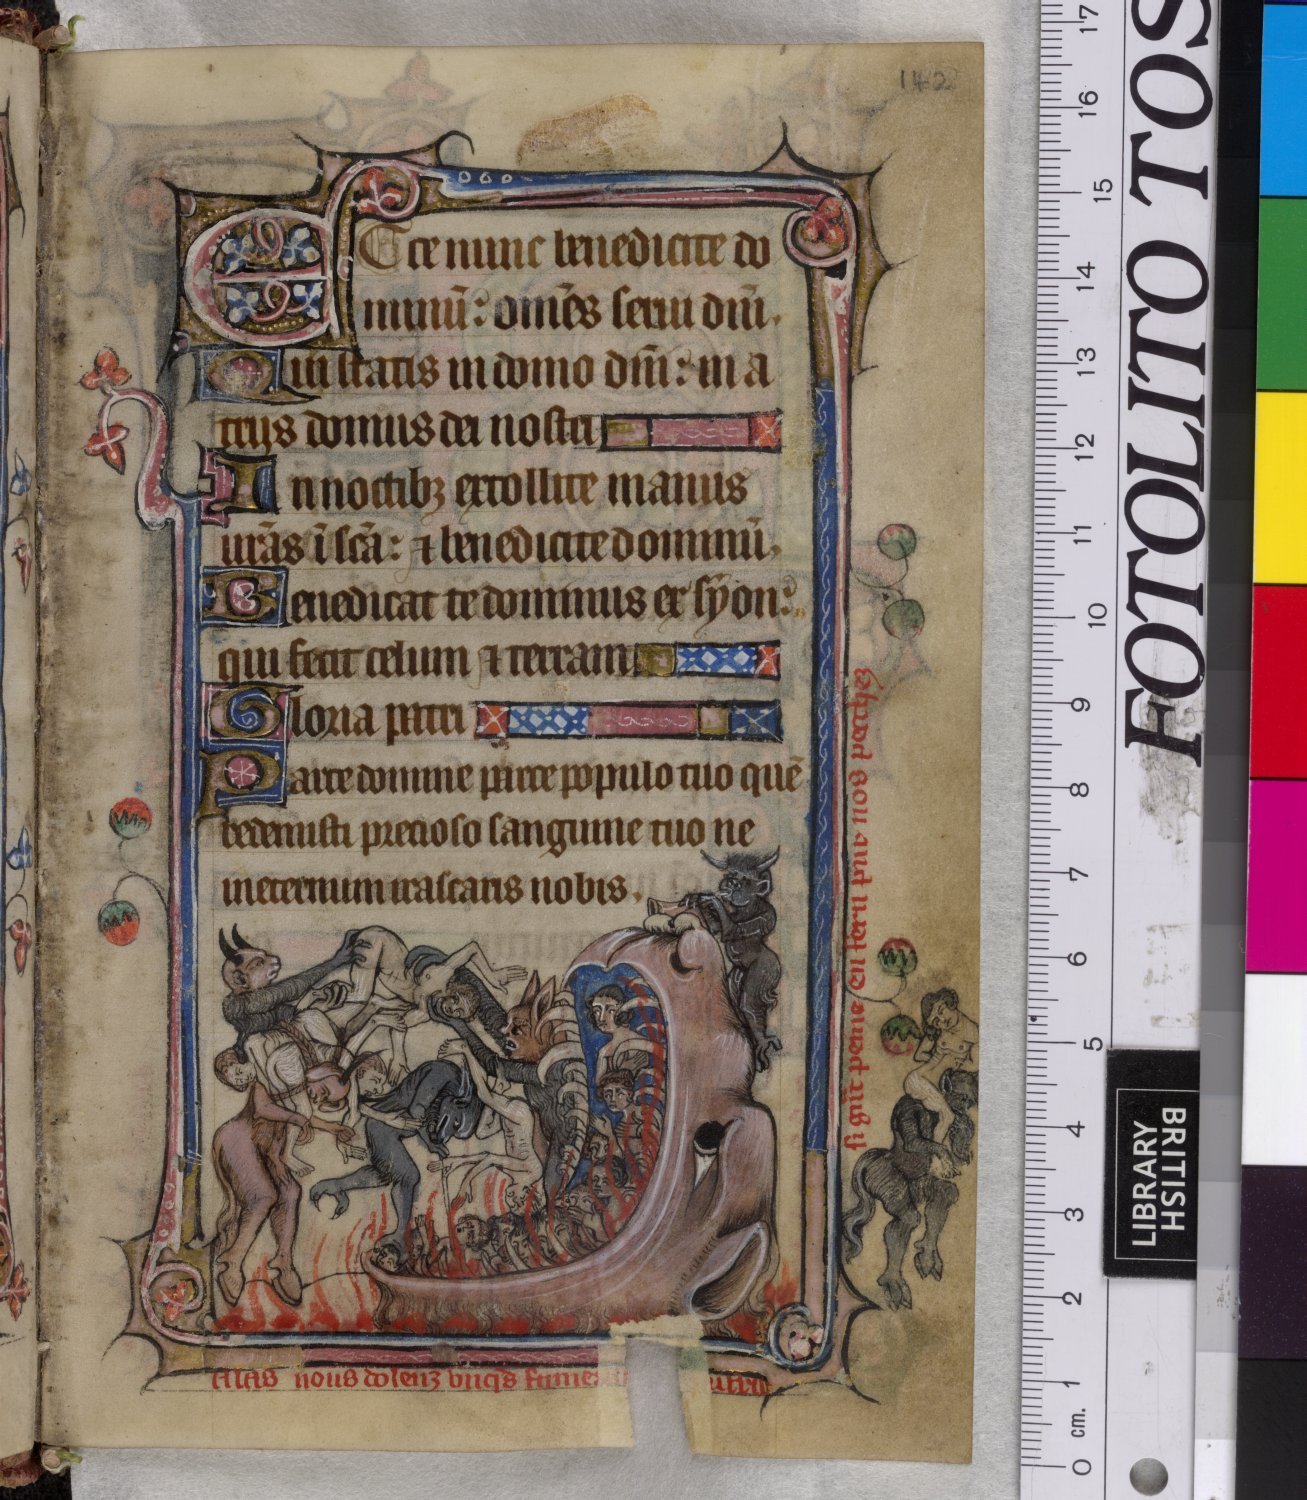 142
Ecce nunc benedicite do
minū: om̄es serui dn̄i.
Qui statis in domo dn̄i: in a
trijs domus dei nostri
In noctibꝫ extollite manus
ur̄as ī sc̄a: ⁊ benedicite dominū.
Benedicat te dominus ex syon:
qui fecit celum ⁊ terram
Gloria patri
Parce domine parce populo tuo quē
redemisti precioso sanguine tuo ne
ineternum irascaris nobis.
si gn̄t peine en fern pur nos pecchez
Alas nous dolenz
FOTOLITO TOS
BRITISH
LIBRARY
0 cm. 1 2 3 4 5 6 7 8 9 10 11 12 13 14 15 16 17